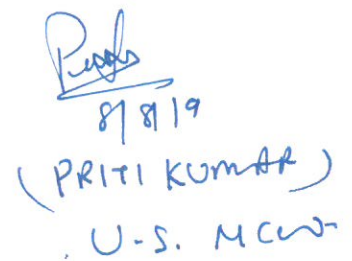 8/8/19
(PRITI KUMAR)
U-S. MCW